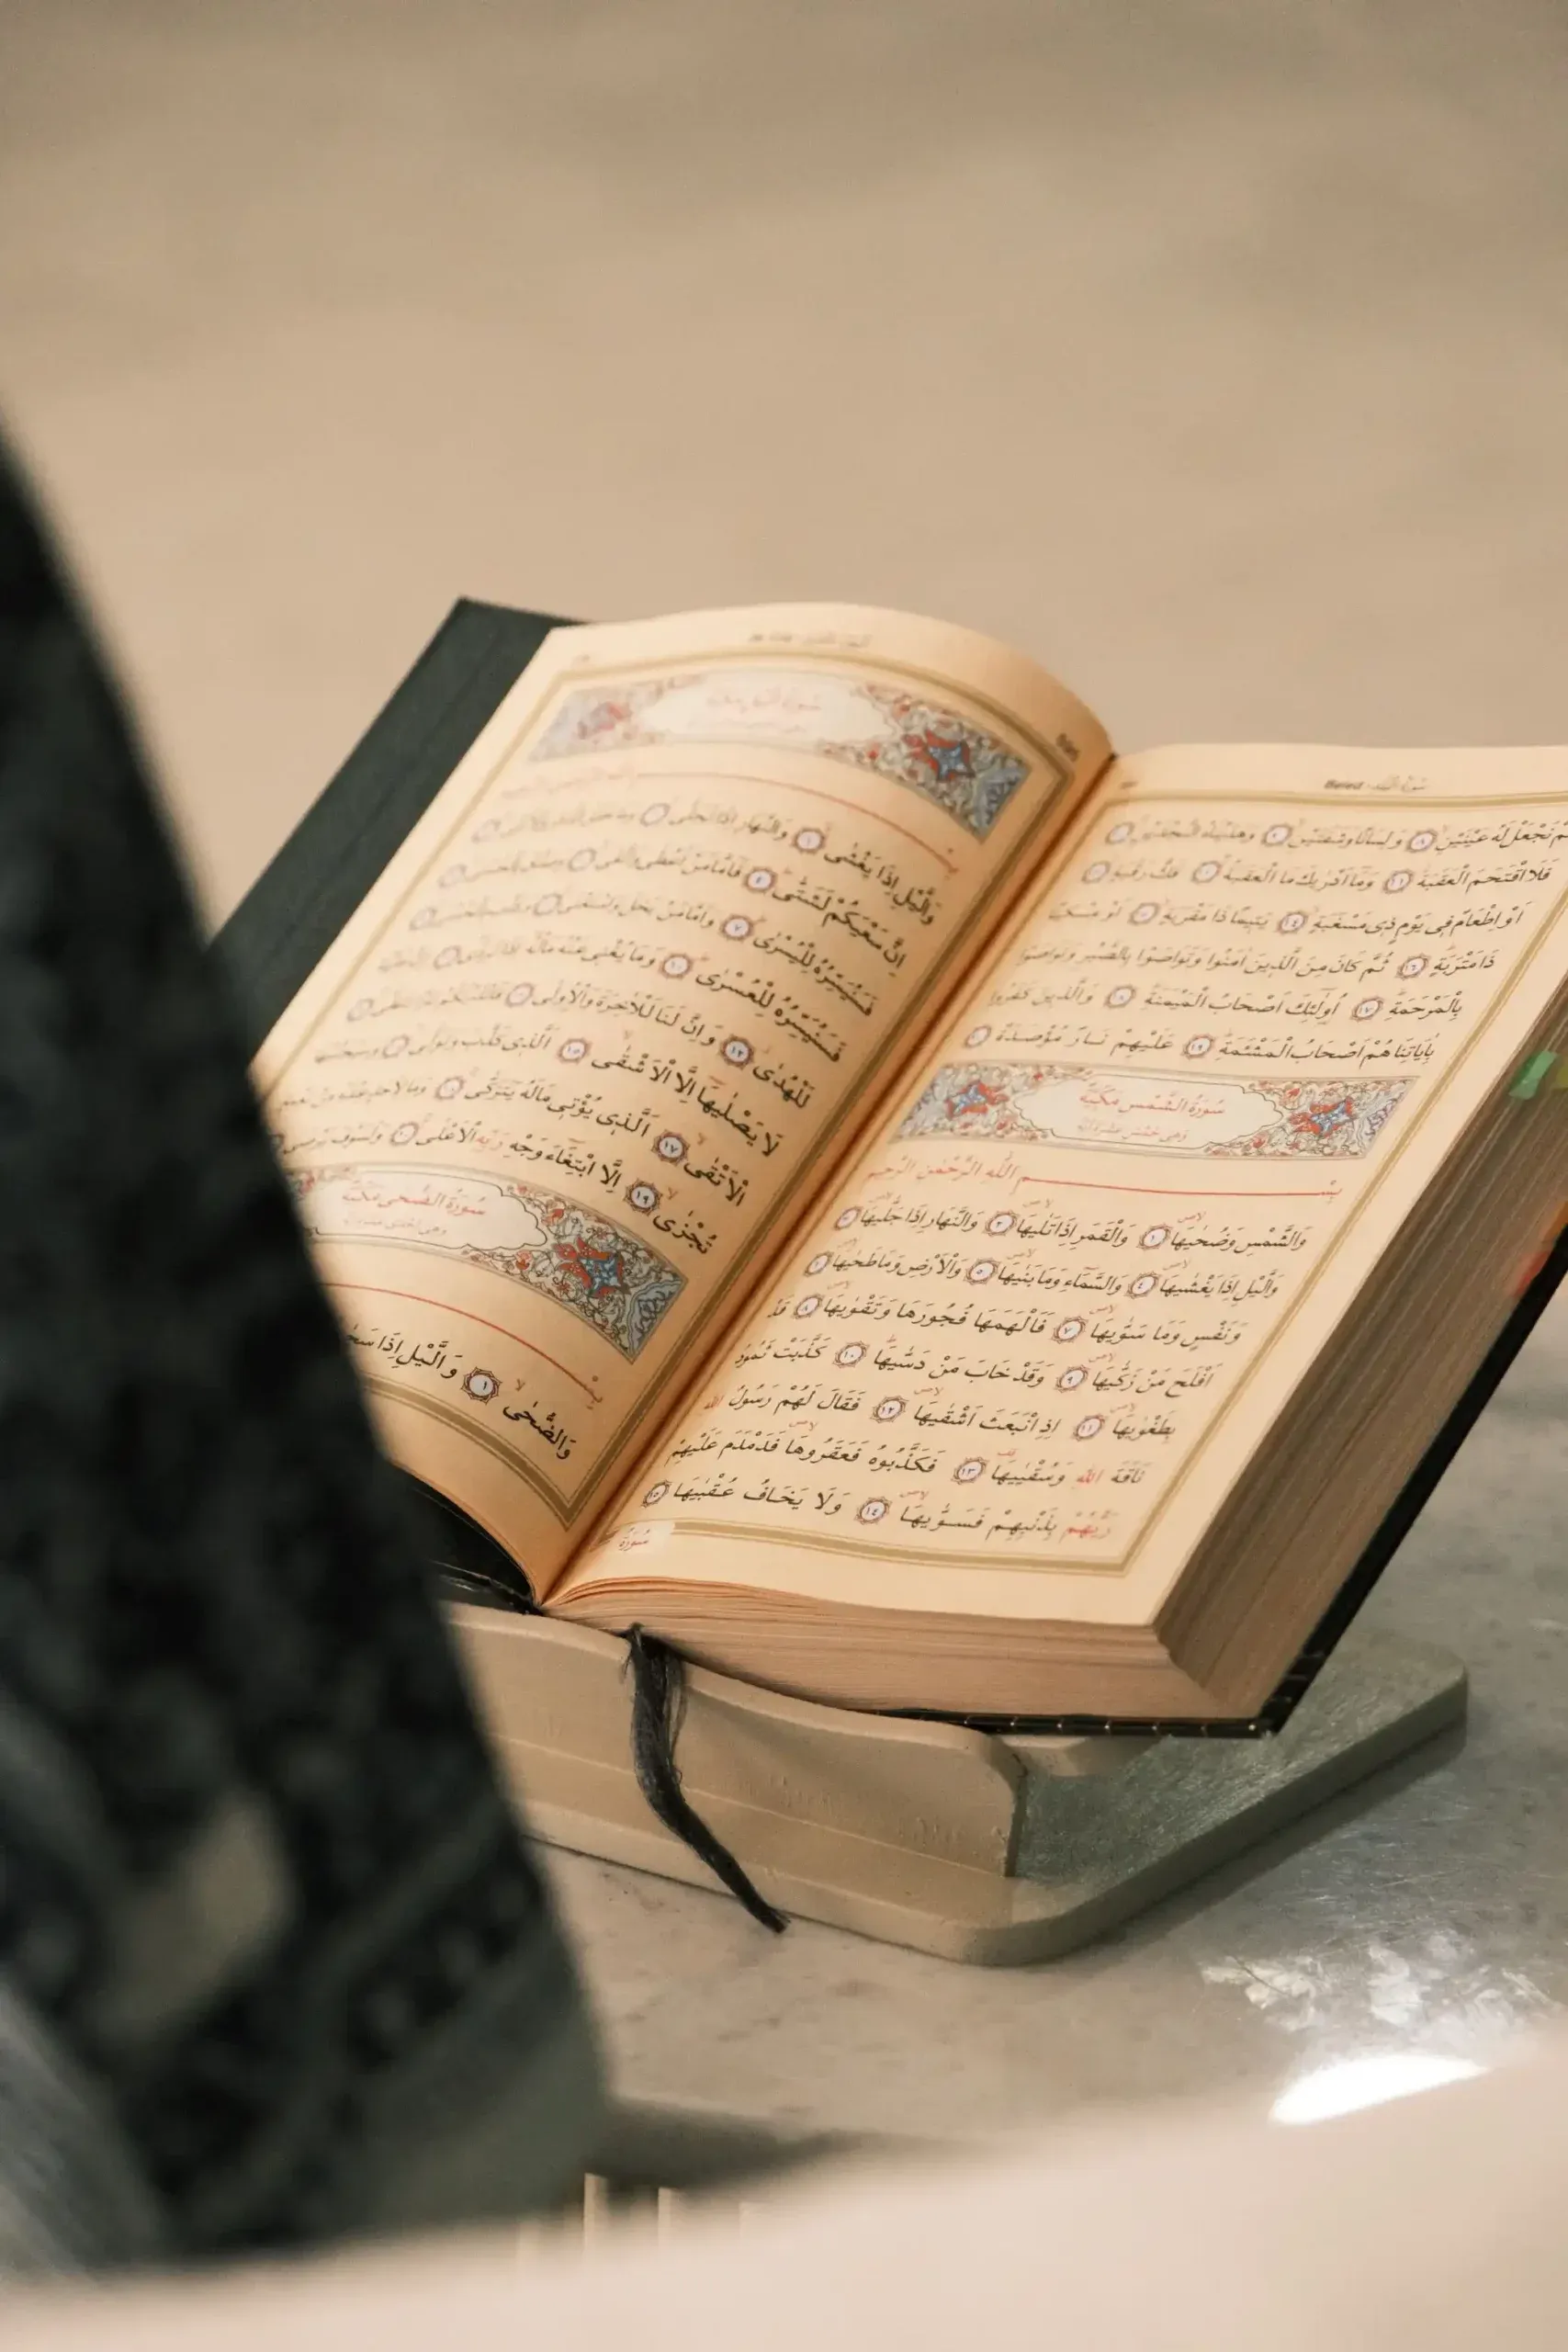 Beled سورة البلد
نَجْعَلْ لَهُ عَيْنَيْنِ ٨ وَلِسَانًا وَشَفَتَيْنِ ٩ وَهَدَيْنَاهُ النَّجْدَيْنِ ١٠
فَلَا اقْتَحَمَ الْعَقَبَةَ ١١ وَمَا اَدْرٰيكَ مَا الْعَقَبَةُ ١٢ فَكُّ رَقَبَةٍ ١٣
اَوْ اِطْعَامٌ فِى يَوْمٍ ذِى مَسْغَبَةٍ ١٤ يَتِيمًا ذَا مَقْرَبَةٍ ١٥ اَوْ مِسْكِينًا
ذَا مَتْرَبَةٍ ١٦ ثُمَّ كَانَ مِنَ الَّذِينَ اٰمَنُوا وَتَوَاصَوْا بِالصَّبْرِ وَتَوَاصَوْا
بِالْمَرْحَمَةِ ١٧ اُولٰٓئِكَ اَصْحَابُ الْمَيْمَنَةِ ١٨ وَالَّذِينَ كَفَرُوا
بِاٰيَاتِنَا هُمْ اَصْحَابُ الْمَشْئَمَةِ ١٩ عَلَيْهِمْ نَارٌ مُؤْصَدَةٌ ٢٠
سُورَةُ الشَّمْسِ مَكِّيَّةٌ
وَهِىَ خَمْسَ عَشْرَةَ اٰيَةً
بِسْمِ اللّٰهِ الرَّحْمٰنِ الرَّحِيمِ
وَالشَّمْسِ وَضُحٰيهَا ١ وَالْقَمَرِ اِذَا تَلٰيهَا ٢ وَالنَّهَارِ اِذَا جَلّٰيهَا ٣
وَالَّيْلِ اِذَا يَغْشٰيهَا ٤ وَالسَّمَاءِ وَمَا بَنٰيهَا ٥ وَالْاَرْضِ وَمَا طَحٰيهَا ٦
وَنَفْسٍ وَمَا سَوّٰيهَا ٧ فَاَلْهَمَهَا فُجُورَهَا وَتَقْوٰيهَا ٨ قَدْ
اَفْلَحَ مَنْ زَكّٰيهَا ٩ وَقَدْ خَابَ مَنْ دَسّٰيهَا ١٠ كَذَّبَتْ ثَمُودُ
بِطَغْوٰيهَا ١١ اِذِ انْبَعَثَ اَشْقٰيهَا ١٢ فَقَالَ لَهُمْ رَسُولُ اللّٰهِ
نَاقَةَ اللّٰهِ وَسُقْيٰيهَا ١٣ فَكَذَّبُوهُ فَعَقَرُوهَا فَدَمْدَمَ عَلَيْهِمْ
رَبُّهُمْ بِذَنْبِهِمْ فَسَوّٰيهَا ١٤ وَلَا يَخَافُ عُقْبٰيهَا ١٥
سُورَةُ
وَالَّيْلِ اِذَا يَغْشٰى ١ وَالنَّهَارِ اِذَا تَجَلّٰى ٢
اِنَّ سَعْيَكُمْ لَشَتّٰى ٤ فَاَمَّا مَنْ اَعْطٰى وَاتَّقٰى ٥
فَسَنُيَسِّرُهُ لِلْيُسْرٰى ٧ وَاَمَّا مَنْ بَخِلَ وَاسْتَغْنٰى ٨
فَسَنُيَسِّرُهُ لِلْعُسْرٰى ١٠ وَمَا يُغْنِى عَنْهُ مَالُهُ
لَلْهُدٰى ١٢ وَاِنَّ لَنَا لَلْاٰخِرَةَ وَالْاُولٰى ١٣
لَا يَصْلٰيهَا اِلَّا الْاَشْقٰى ١٥ اَلَّذِى كَذَّبَ وَتَوَلّٰى ١٦
الْاَتْقٰى ١٧ اَلَّذِى يُؤْتِى مَالَهُ يَتَزَكّٰى ١٨ وَمَا لِاَحَدٍ عِنْدَهُ مِنْ نِعْمَةٍ
تُجْزٰى ١٩ اِلَّا ابْتِغَاءَ وَجْهِ رَبِّهِ الْاَعْلٰى ٢٠ وَلَسَوْفَ يَرْضٰى
سُورَةُ الضُّحٰى مَكِّيَّةٌ
وَالضُّحٰى ١ وَالَّيْلِ اِذَا